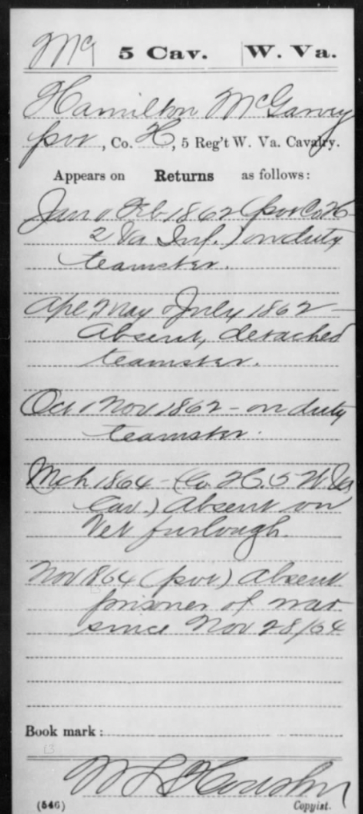 Mc | 5 Cav. | W. Va.
Hamilton McGarvy
pvt, Co. H, 5 Reg't W. Va. Cavalry.
Appears on Returns as follows:
Jan & Feb 1862 (pvt Co H
2 Va Inf.) on duty
teamster.
Apl May & July 1862 —
Absent, detached
teamster.
Oct & Nov 1862 - on duty
teamster.
Mch 1864 - (Co H, 5 W. Va
Cav.) Absent on
Vet furlough.
Nov 1864 (pvt) Absent
prisoner of war
since Nov 28/64
Book mark:
(546) Copyist.